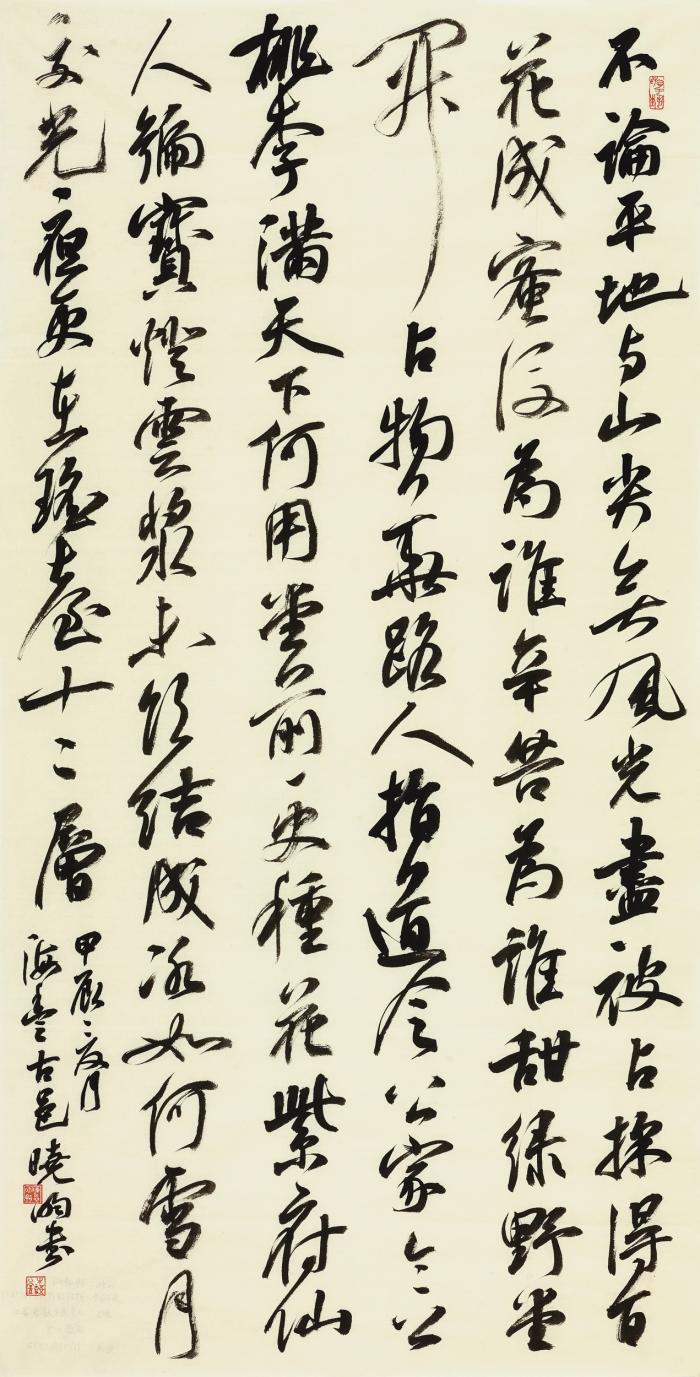 不論平地与山尖無風光盡被占採得百
花成蜜後為誰辛苦為誰甜緑野堂
開占物華路人指道令公家令公
桃李满天下何用堂前更種花紫府仙
人號寶燈雲漿未飲結成冰如何雪月
交光夜更在瑤臺十二層
甲辰月
海古邑曉